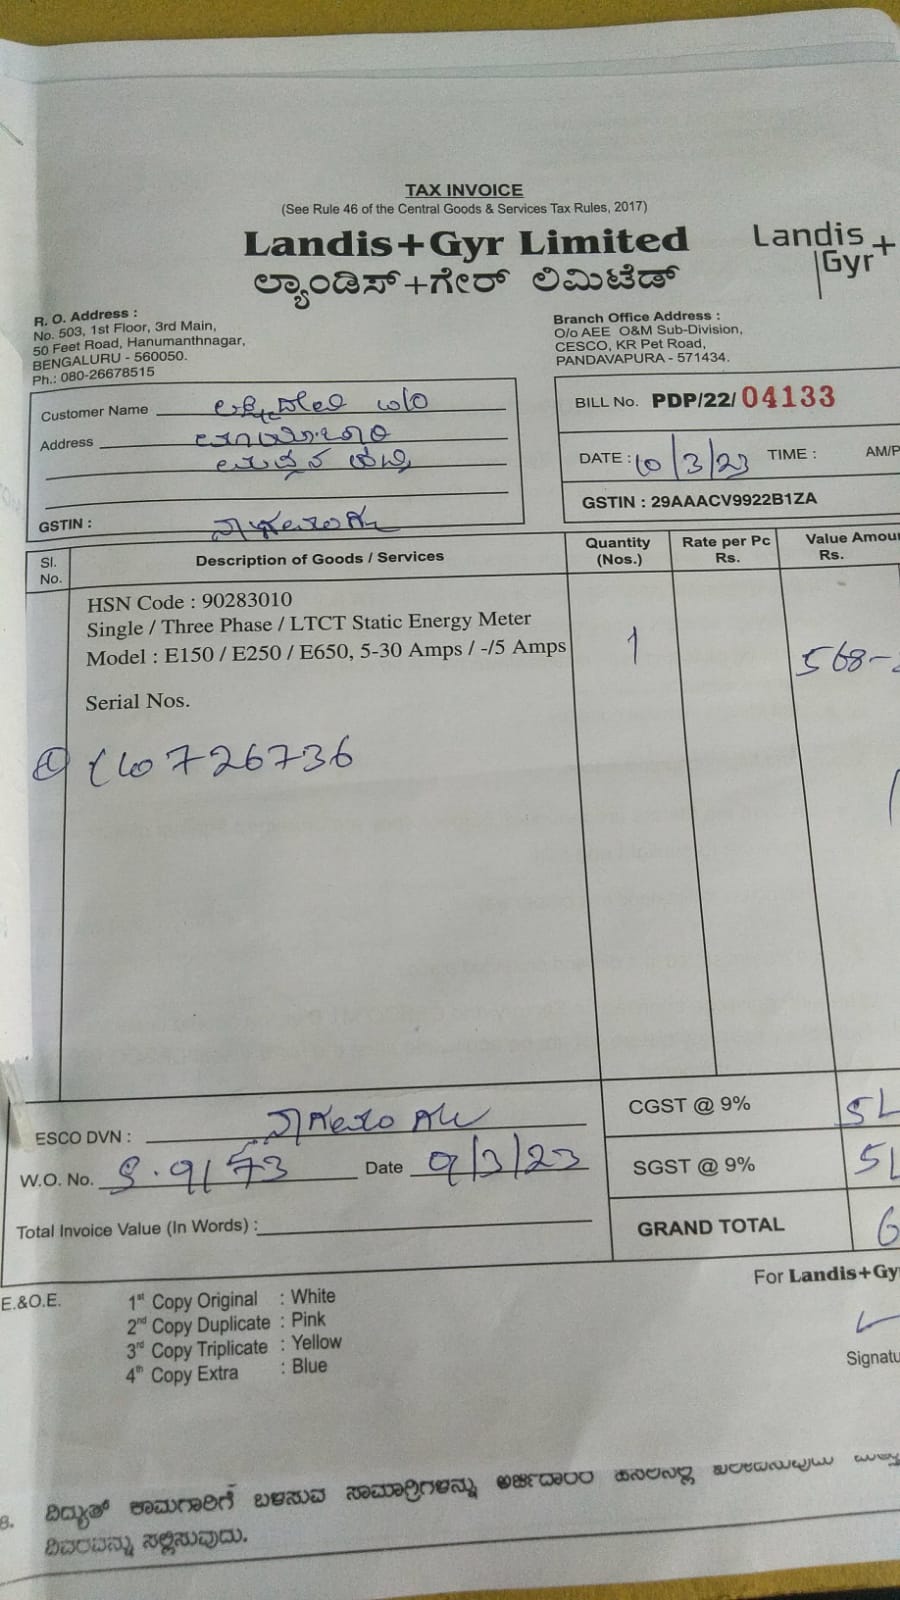 TAX INVOICE
(See Rule 46 of the Central Goods & Services Tax Rules, 2017)
Landis+Gyr Limited
Landis
Gyr+
ಲ್ಯಾಂಡಿಸ್+ಗೇರ್ ಲಿಮಿಟೆಡ್
R. O. Address :
No. 503, 1st Floor, 3rd Main,
50 Feet Road, Hanumanthnagar,
BENGALURU - 560050.
Ph.: 080-26678515
Branch Office Address :
O/o AEE O&M Sub-Division,
CESCO, KR Pet Road,
PANDAVAPURA - 571434.
Customer Name
Address
GSTIN :
BILL No. PDP/22/ 04133
DATE : 10/3/23 TIME : AM/P
GSTIN : 29AAACV9922B1ZA
Sl. No. Description of Goods / Services Quantity (Nos.) Rate per Pc Rs. Value Amou Rs.
HSN Code : 90283010
Single / Three Phase / LTCT Static Energy Meter
Model : E150 / E250 / E650, 5-30 Amps / -/5 Amps 1 568-
Serial Nos.
726736
ESCO DVN :
W.O. No. Date 9/3/23
Total Invoice Value (In Words) :
CGST @ 9%
SGST @ 9%
GRAND TOTAL
E.&O.E.
1st Copy Original : White
2nd Copy Duplicate : Pink
3rd Copy Triplicate : Yellow
4th Copy Extra : Blue
For Landis+Gy
Signatu
8. ವಿದ್ಯುತ್ ಕಾಮಗಾರಿಗೆ ಬಳಸುವ ಸಾಮಾಗ್ರಿಗಳನ್ನು ಅರ್ಜಿದಾರರ ಹೆಸರಿನಲ್ಲಿ ಖರೀದಿಸುವುದು
ವಿವರವನ್ನು ಸಲ್ಲಿಸುವುದು.